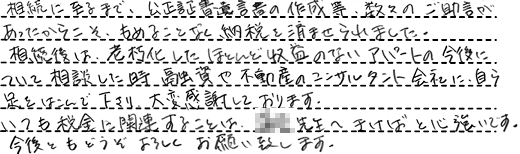 相続に至るまで、公正証書遺言書の作成等、数々のご助言が
あったからこそ、もめることなく納税を済ませられました。
相続後は、老朽化したほとんど収益のないアパートの今後に
ついて相談した時、融資や不動産のコンサルタント会社に、自ら
足をはこんで下さり、大変感謝しております。
いつも税金に関連することは、先生へきけばと心強いです。
今後ともどうぞよろしくお願い致します。